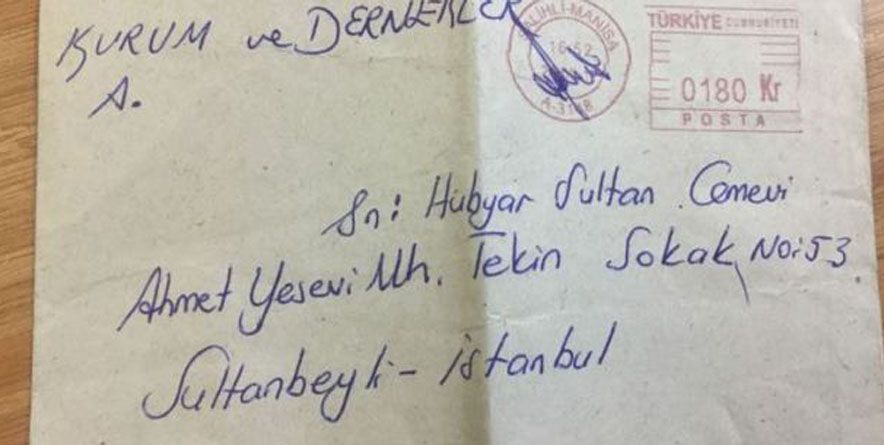 KURUM ve DERNEKLER
A.
SALİHLİ-MANİSA
16:52
TÜRKİYE CUMHURİYETİ
0180 Kr
POSTA
Sn: Hubyar Sultan Cemevi
Ahmet Yesevi Mh. Tekin Sokak No:53
Sultanbeyli - istanbul